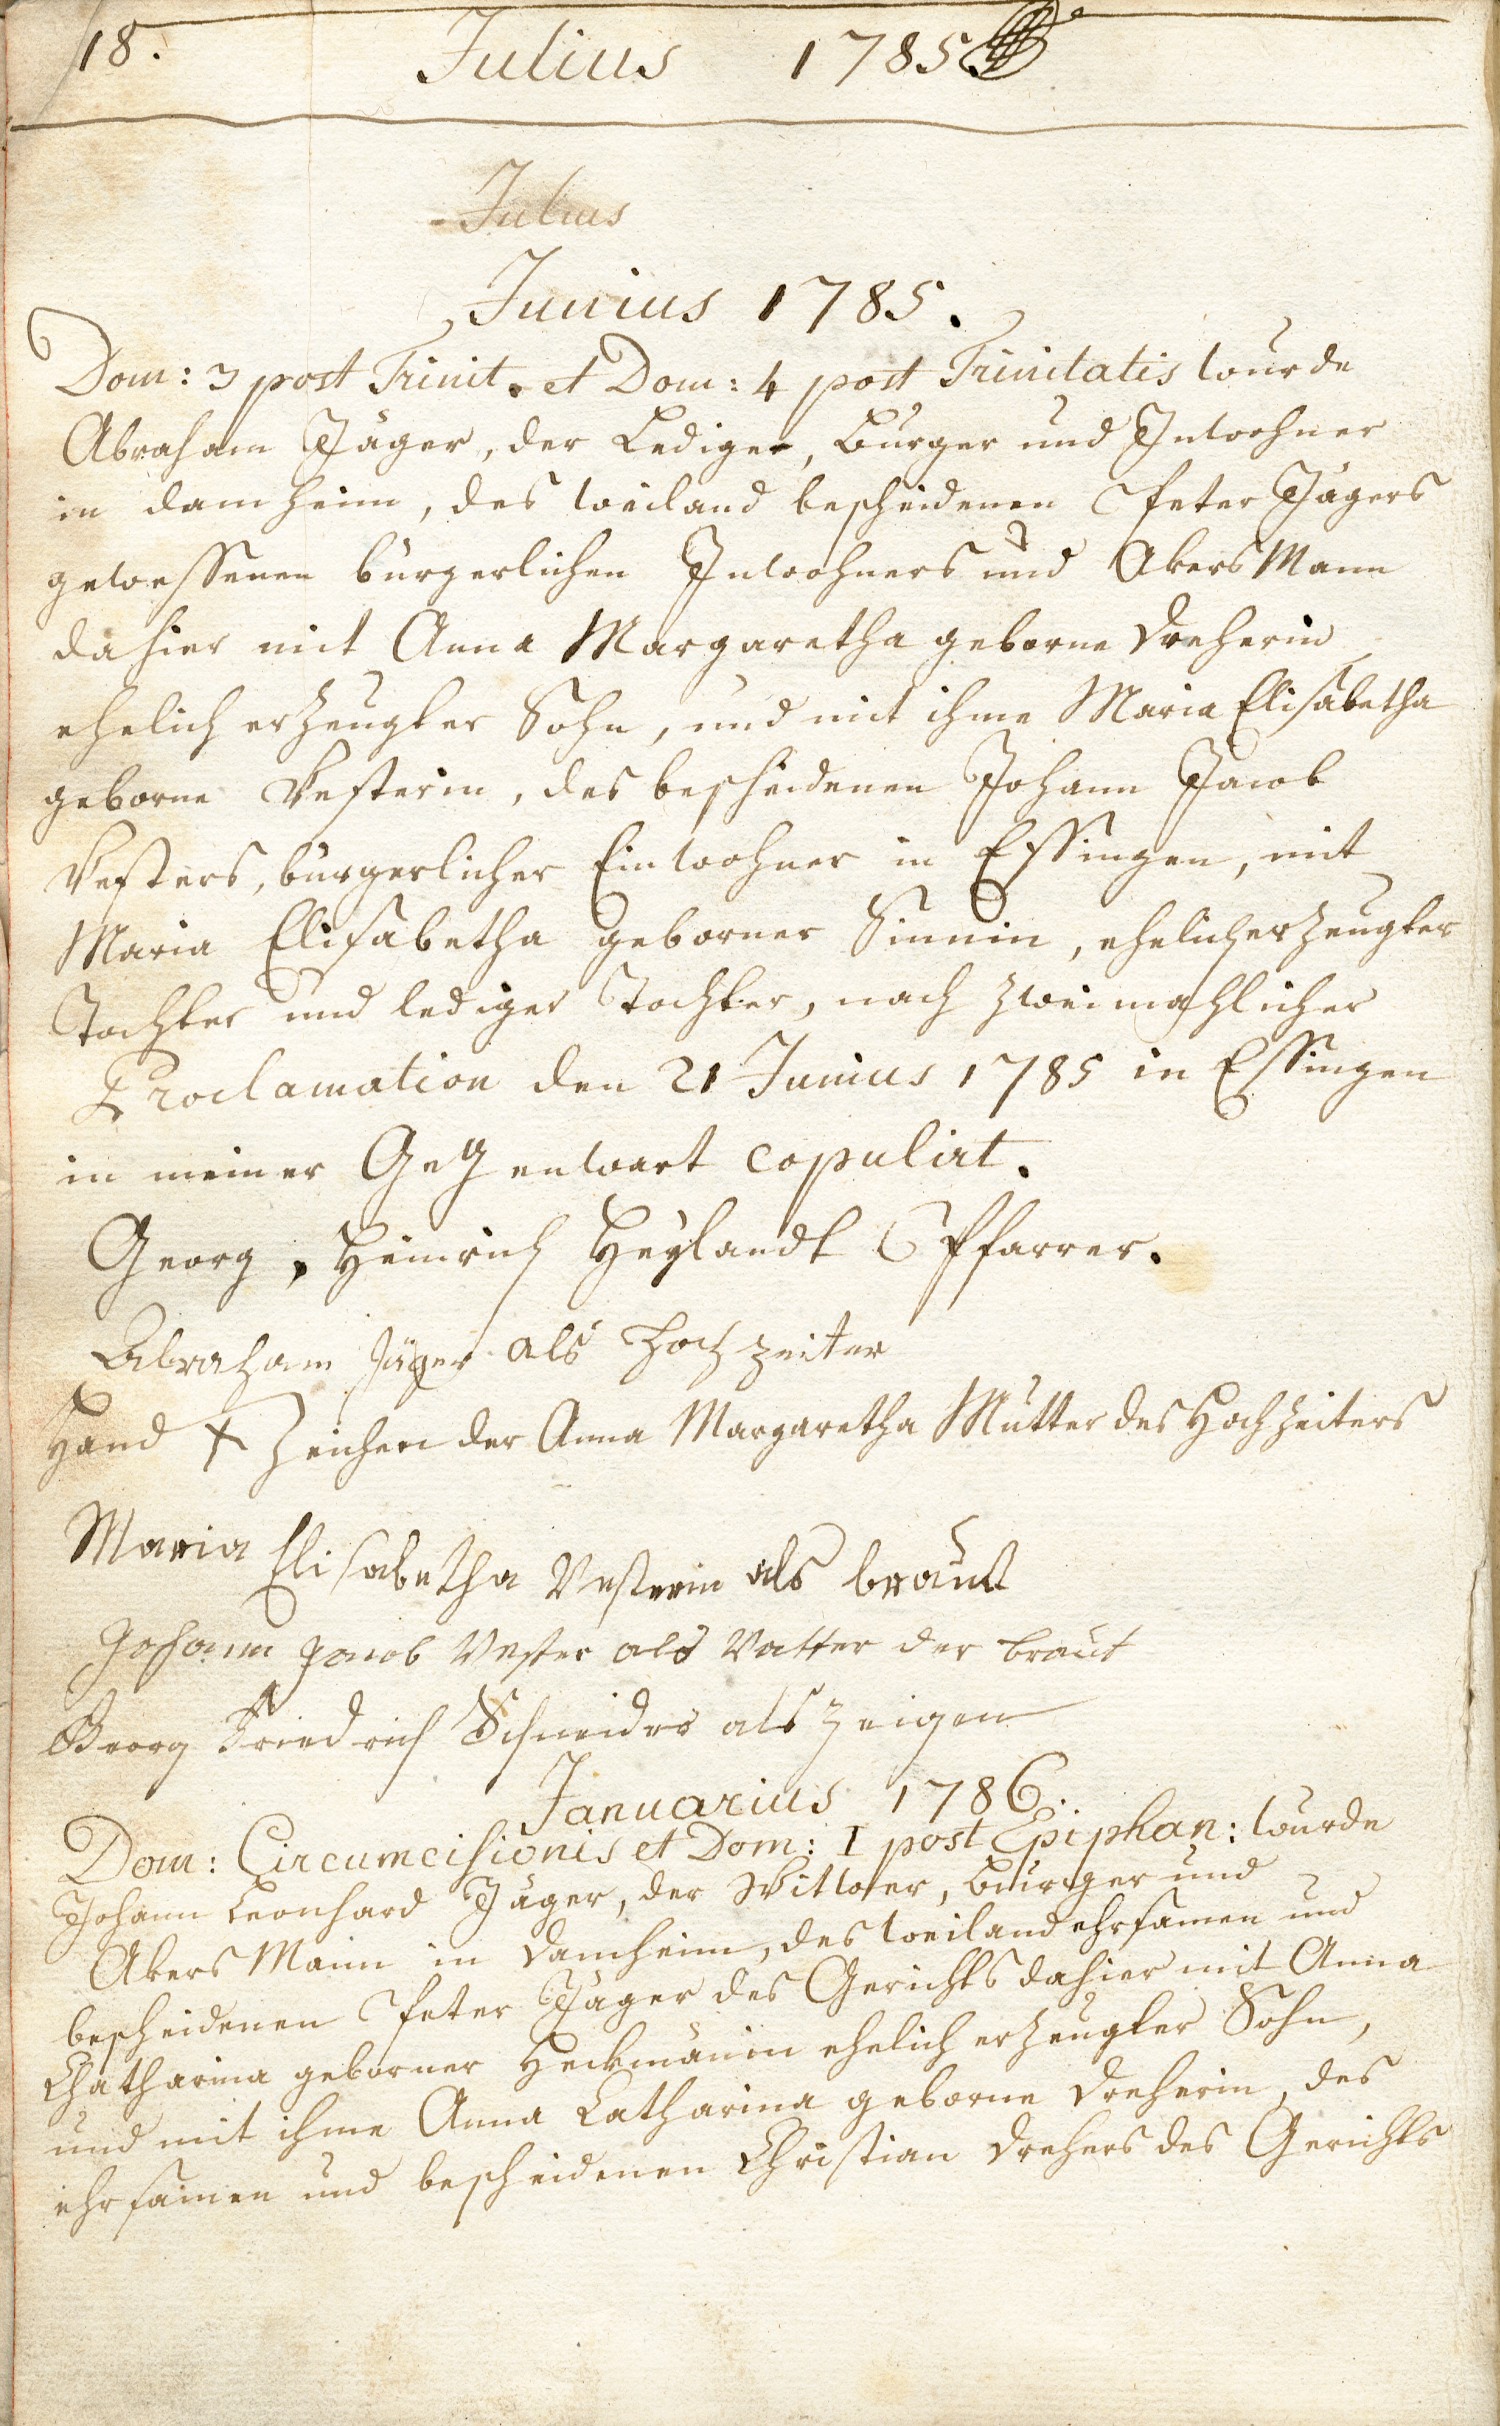 18. Julius 1785
Julius
Junius 1785.
Dom: 3 post Trinit. et Dom: 4 post Trinitatis wurde
Abraham Jäger, der Lediger, Burger und Inwohner
in damheim, des weiland bescheidenen Peter Jägers
gewessenen burgerlichen Inwohners und Akers Mann
dahier mit Anna Margaretha geborne Dreherin
ehelich erzeugter Sohn, und mit ihme Maria Elisabetha
geborne Vesterin, des bescheidenen Johann Jacob
Vesters, burgerlicher Einwohner in Essingen, mit
Maria Elisabetha geborner Sinnin, ehelich erzeugter
Tochter und lediger Tochter, nach zweimahlicher
Proclamation den 21 Junius 1785 in Essingen
in meiner Gegenwart copulirt.
Georg, Heinrich Heylandt Pfarrer.
Abraham Jäger als hochzeiter
Hand + Zeichen der Anna Margaretha Mutter des Hochzeiters
Maria Elisabetha Vesterin als braut
Johann Jacob Vester als Vatter der braut
Georg Friedrich Schneider als zeigen
Januarius 1786.
Dom: Circumcisionis et Dom: I post Epiphan: wurde
Johann Leonhard Jäger, der Wittwer, Burger und
Akers Mann in Damheim, des weiland ehrsamen und
bescheidenen Peter Jäger des Gerichts dahier mit Anna
Chatharina geborner Heckmännin ehelich erzeugter Sohn,
und mit ihme Anna Catharina geborne Dreherin, des
ehrsamen und bescheidenen Christian Drehers des Gerichts